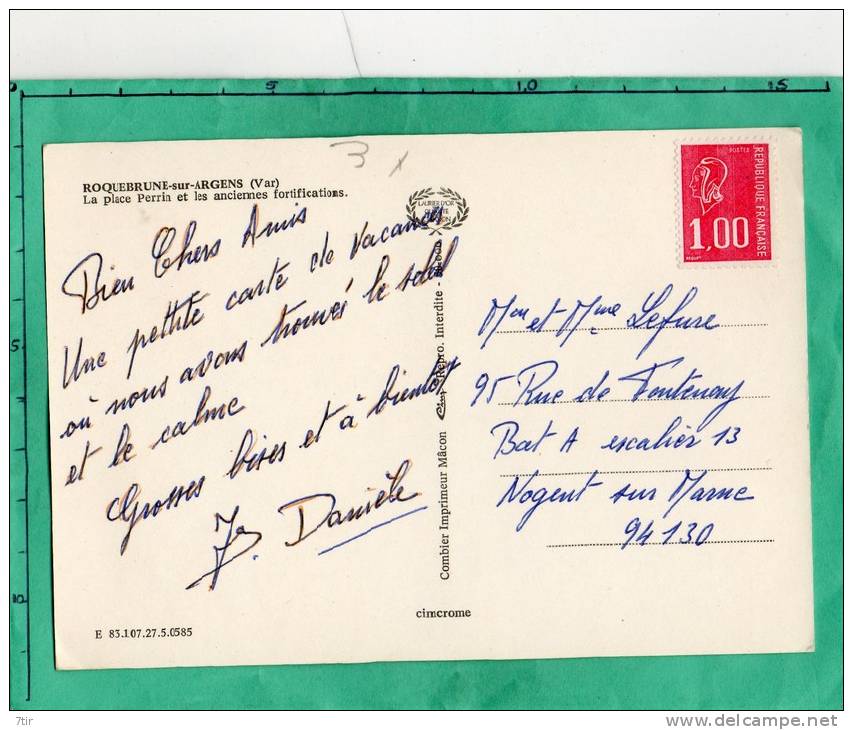 5
10
15
5
10
3 x
ROQUEBRUNE-sur-ARGENS (Var)
La place Perrin et les anciennes fortifications.
Bien Chers Amis
Une pettite carte de vacances
où nous avons trouvés le soleil
et le calme
Grosses bises et à bientôt
Danièle
E 83.107.27.5.0585
LAURIER D'OR
Combier Imprimeur Mâcon Cim Repro. Interdite -
cimcrome
POSTES
REPUBLIQUE FRANÇAISE
1,00
Mon et Mme Lefure
95 Rue de Fontenay
Bat A escalier 13
Nogent sur Marne
94130
7tir
www.delcampe.net